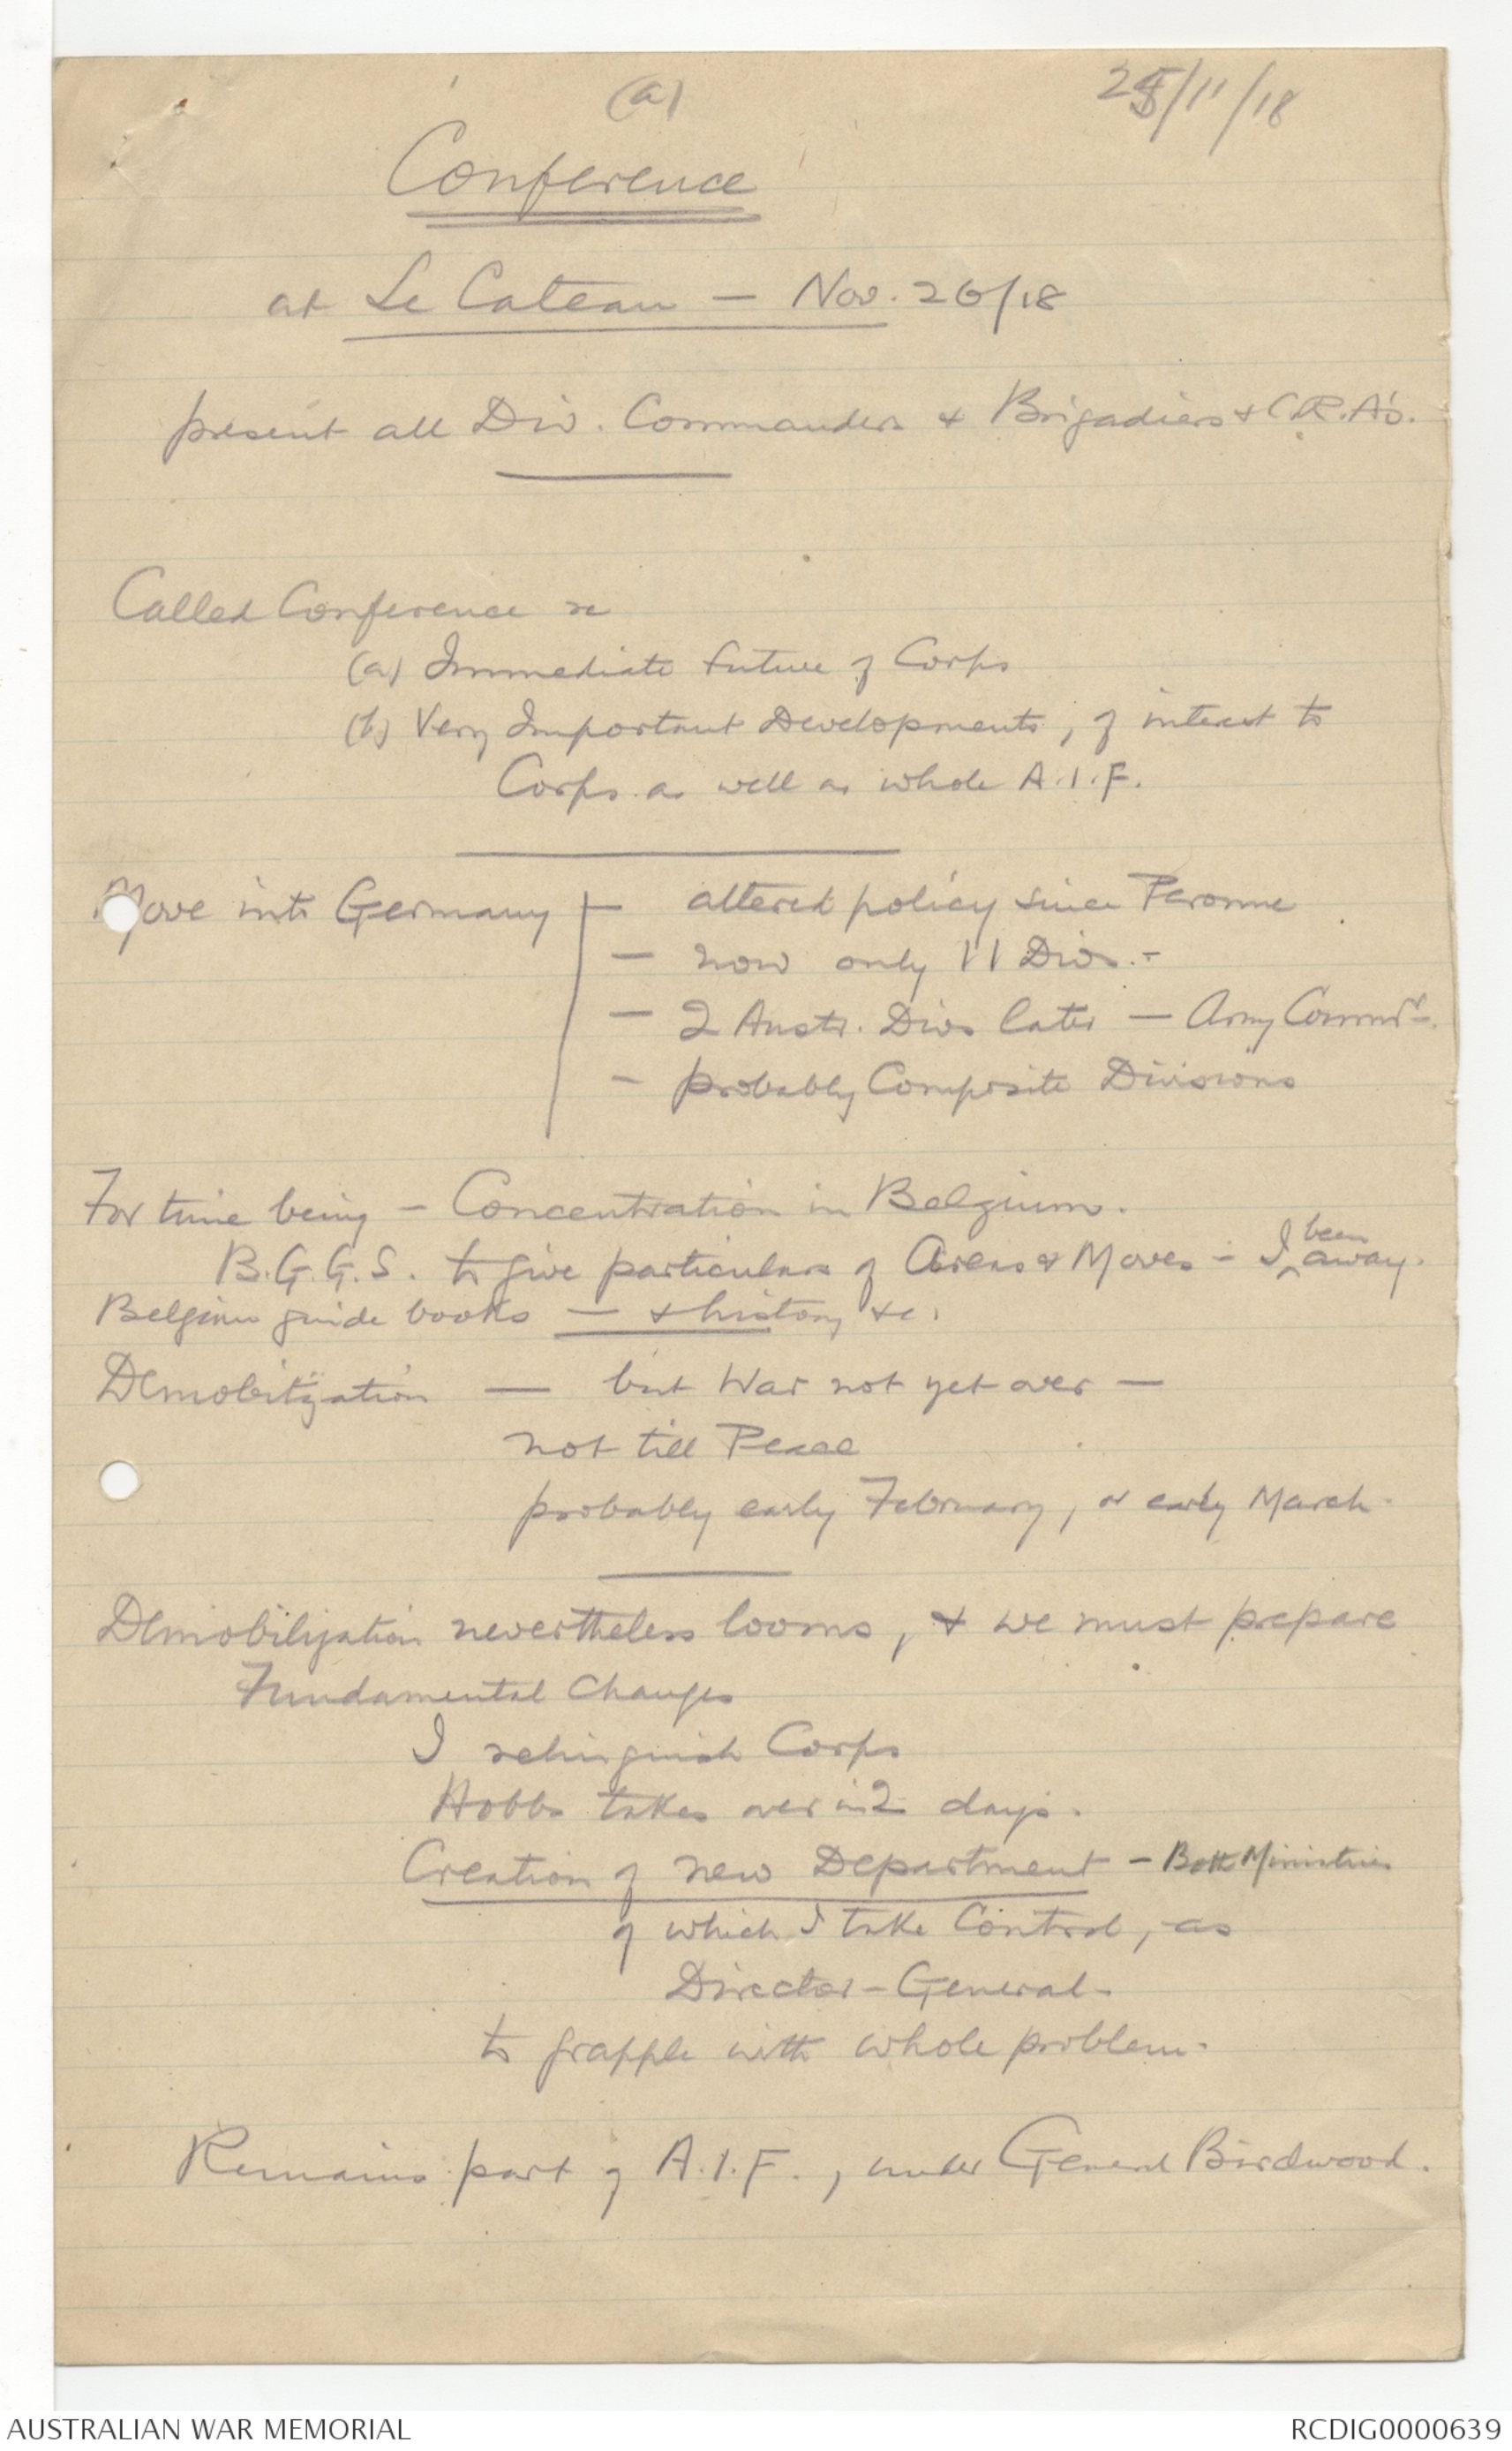 (a)
25/11/18
Conference
at Le Cateau — Nov. 26/18
present all Div. Commanders & Brigadiers & C.R.A's.
Called Conference re
(a) Immediate future of Corps
(b) Very Important Developments, of interest to
Corps as well as whole A.I.F.
Move into Germany — altered policy since Peronne
— now only 11 Divs. -
— 2 Austr. Divs later — Army Commr.
— probably Composite Divisions
For time being — Concentration in Belgium.
B.G.G.S. to give particulars of Areas & Moves - I been away.
Belgium guide books — & history &c.
Demobilization — but War not yet over —
not till Peace
probably early February, or early March.
Demobilization nevertheless looms, & we must prepare
Fundamental Changes
I relinquish Corps
Hobbs takes over in 2 days.
Creation of new Department - Both Ministries
of which I take Control, as
Director-General
to grapple with whole problem.
Remains part of A.I.F., under General Birdwood.
AUSTRALIAN WAR MEMORIAL
RCDIG0000639